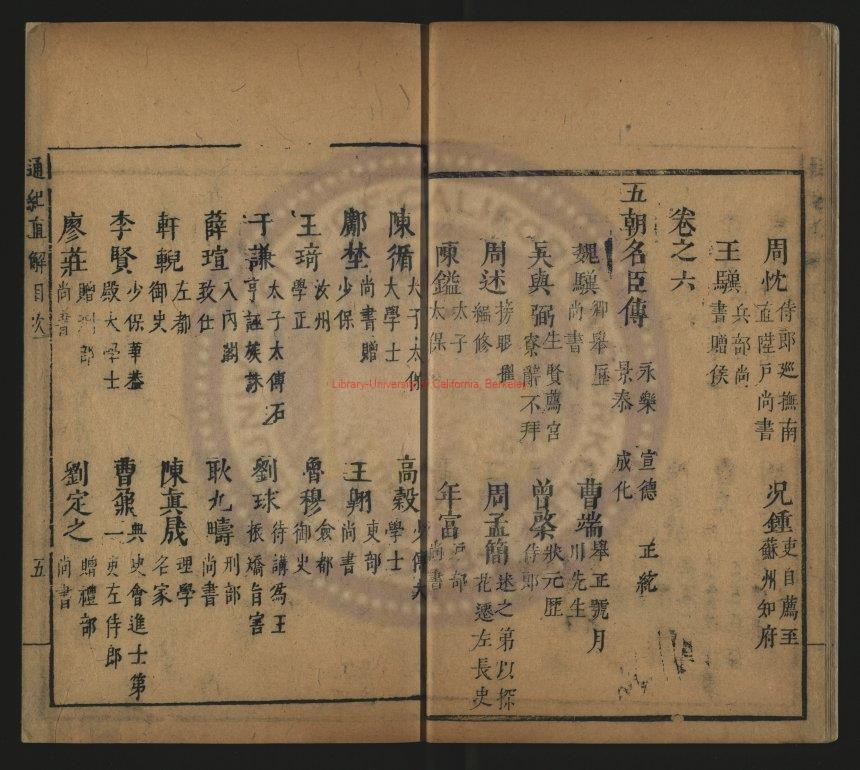 周忱 侍郎巡撫南直陞戶尚書
況鍾 吏自薦至蘇州知府
王驥 兵部尚書贈侯
卷之六
五朝名臣傳 永樂 宣德 正統 景泰 成化
魏驥 鄉舉歷尚書
曹端 舉正號月川先生
吳與弼 生賢薦宮寮辭不拜
曾棨 狀元歷侍郎
周述 榜眼編修
周孟簡 述之弟以探花遷左長史
陳鎰 太子太保
年富 戶部尚書
陳循 太子太保大學士
高穀 少傅大學士
鄺埜 尚書贈少保
王翺 吏部尚書
王琦 汝州學正
魯穆 僉都御史
于謙 太子太傅石亨誣族誅
劉球 待講為王振矯旨害
薛瑄 入內閣致仕
耿九疇 刑部尚書
軒輗 左都御史
陳真晟 理學名家
李賢 少保華蓋殿大學士
曹鼐 典史會進士第一吏左侍郎
廖莊 贈 部尚書
劉定之 贈禮部尚書
通紀直解目次 五
Library-University of California, Berkeley